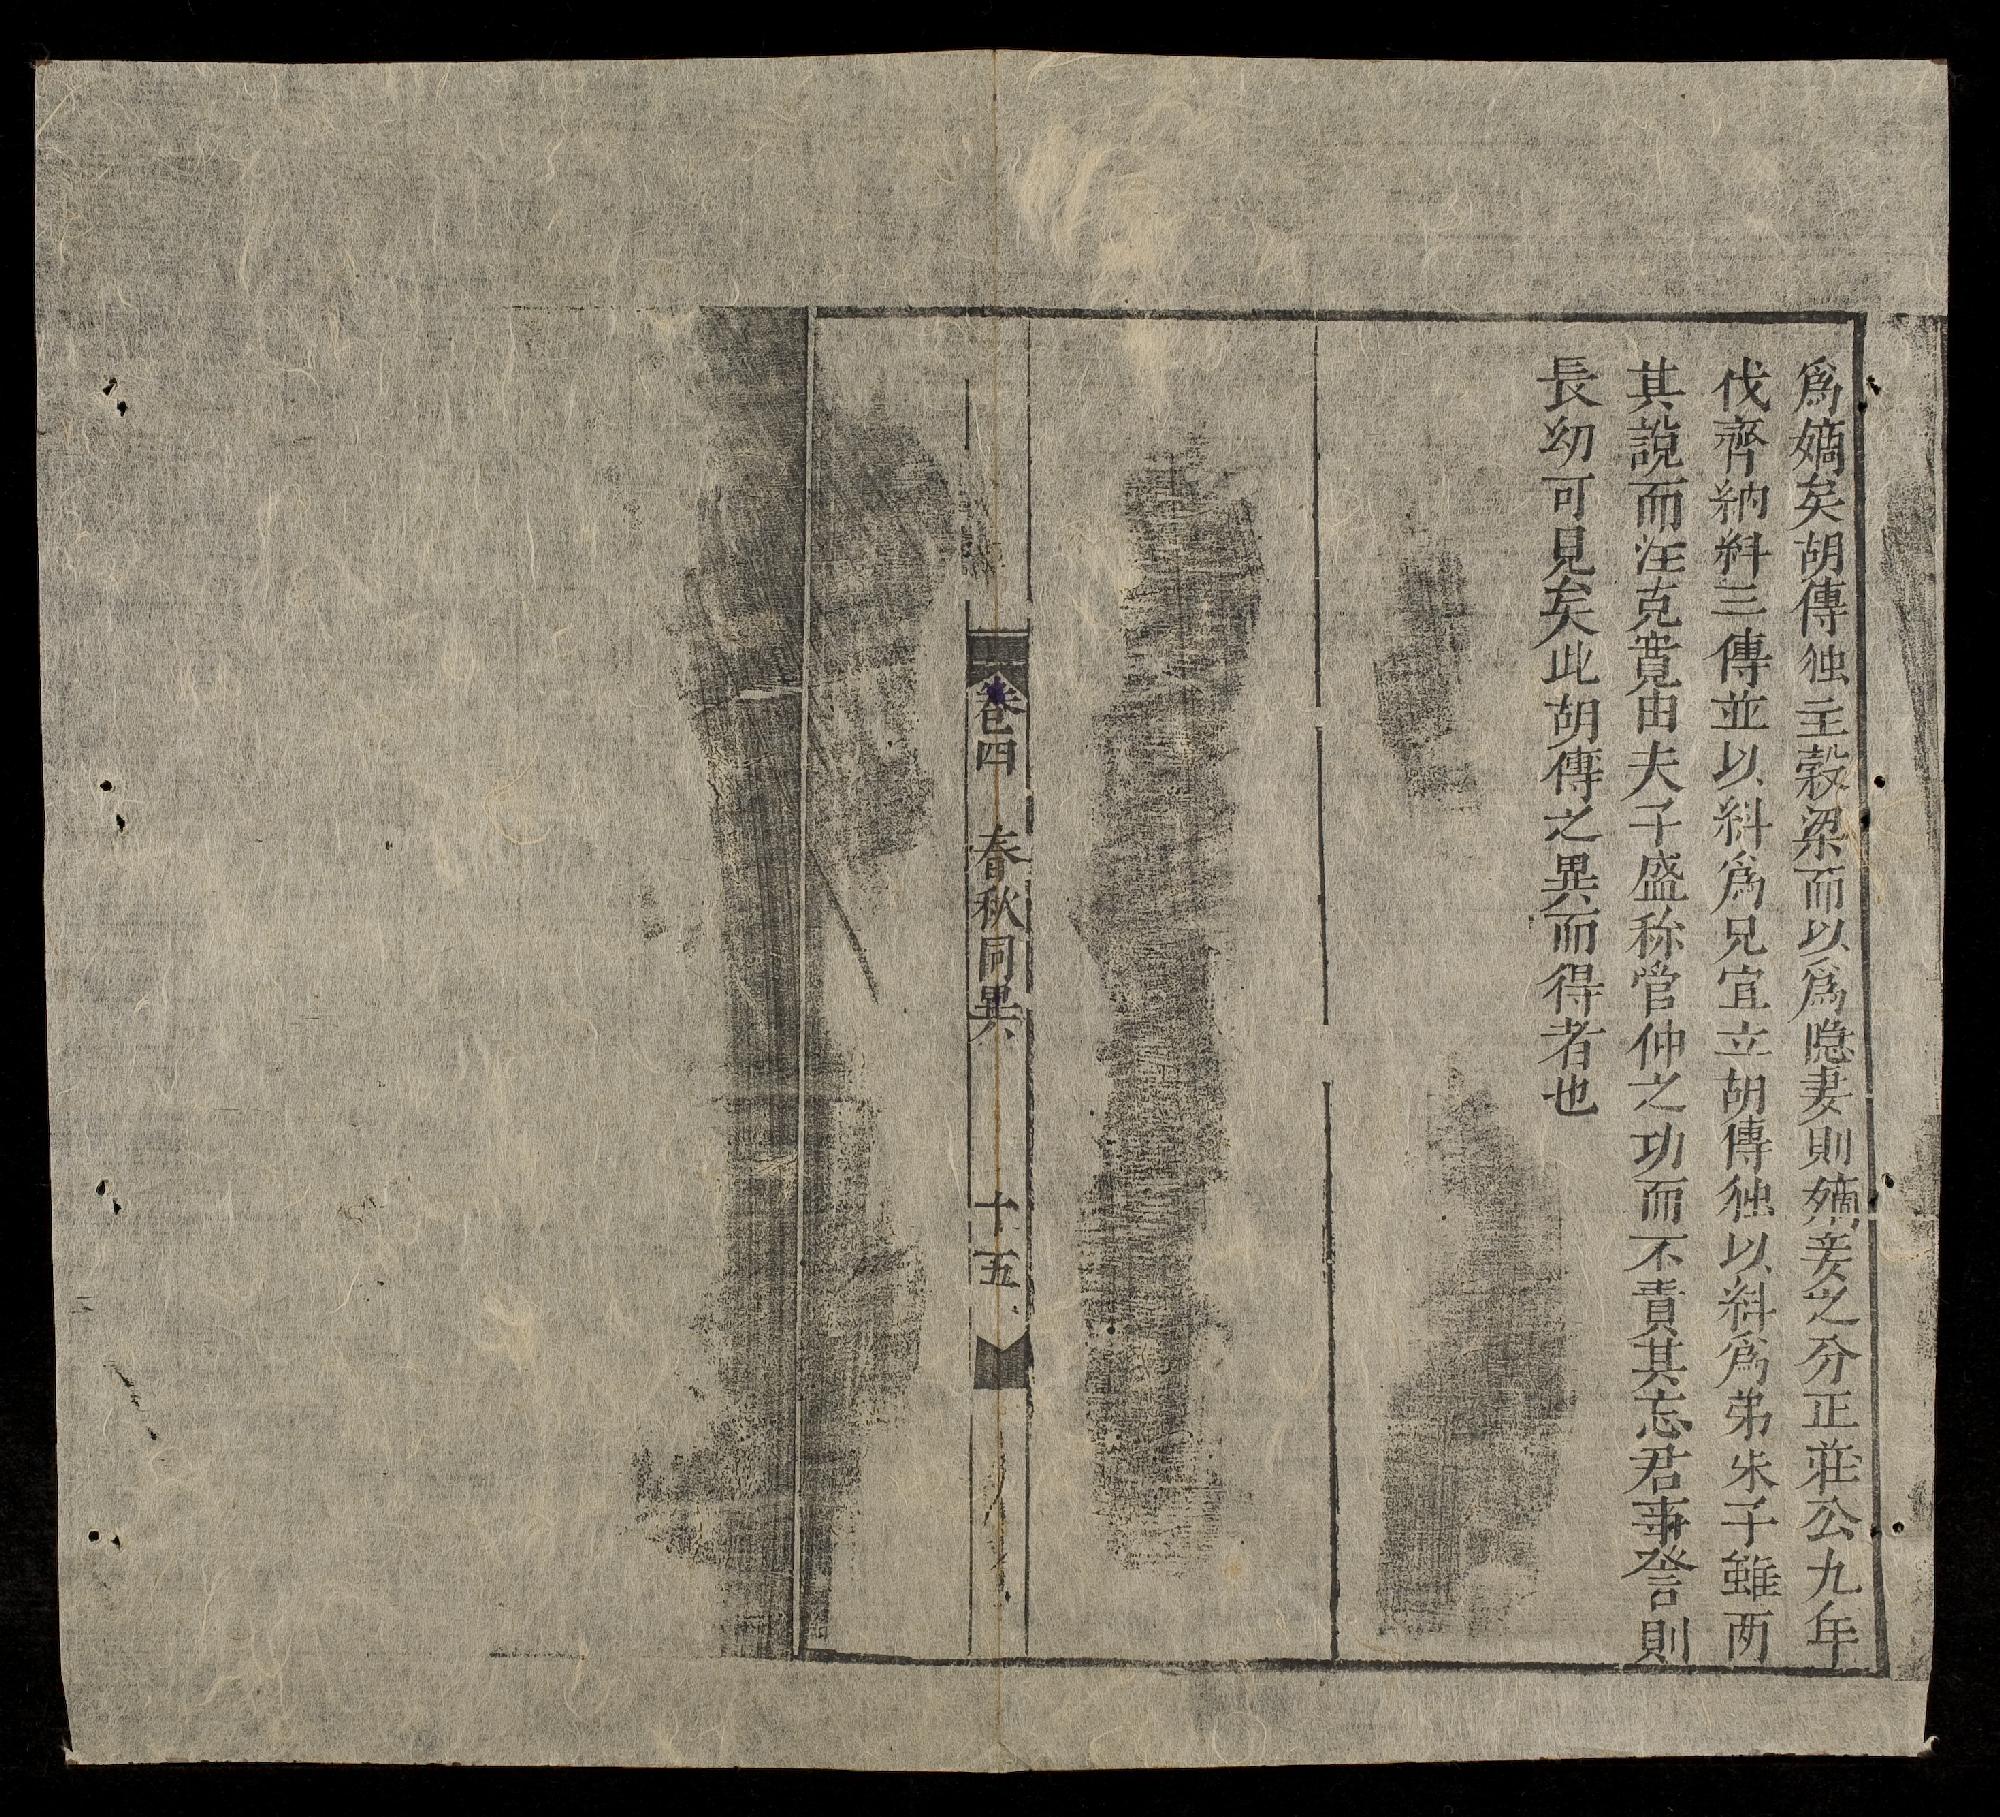 爲嫡矣胡傳独主穀梁而以爲隐妻則嫡妾之分正莊公九年
伐齊納糾三傳並以糾爲兄宜立胡傳独以糾爲弟朱子雖两
其說而注克寛由夫子盛称管仲之功而不責其忘君事讐則
長幼可見矣此胡傳之異而得者也
卷四 春秋同異 十五